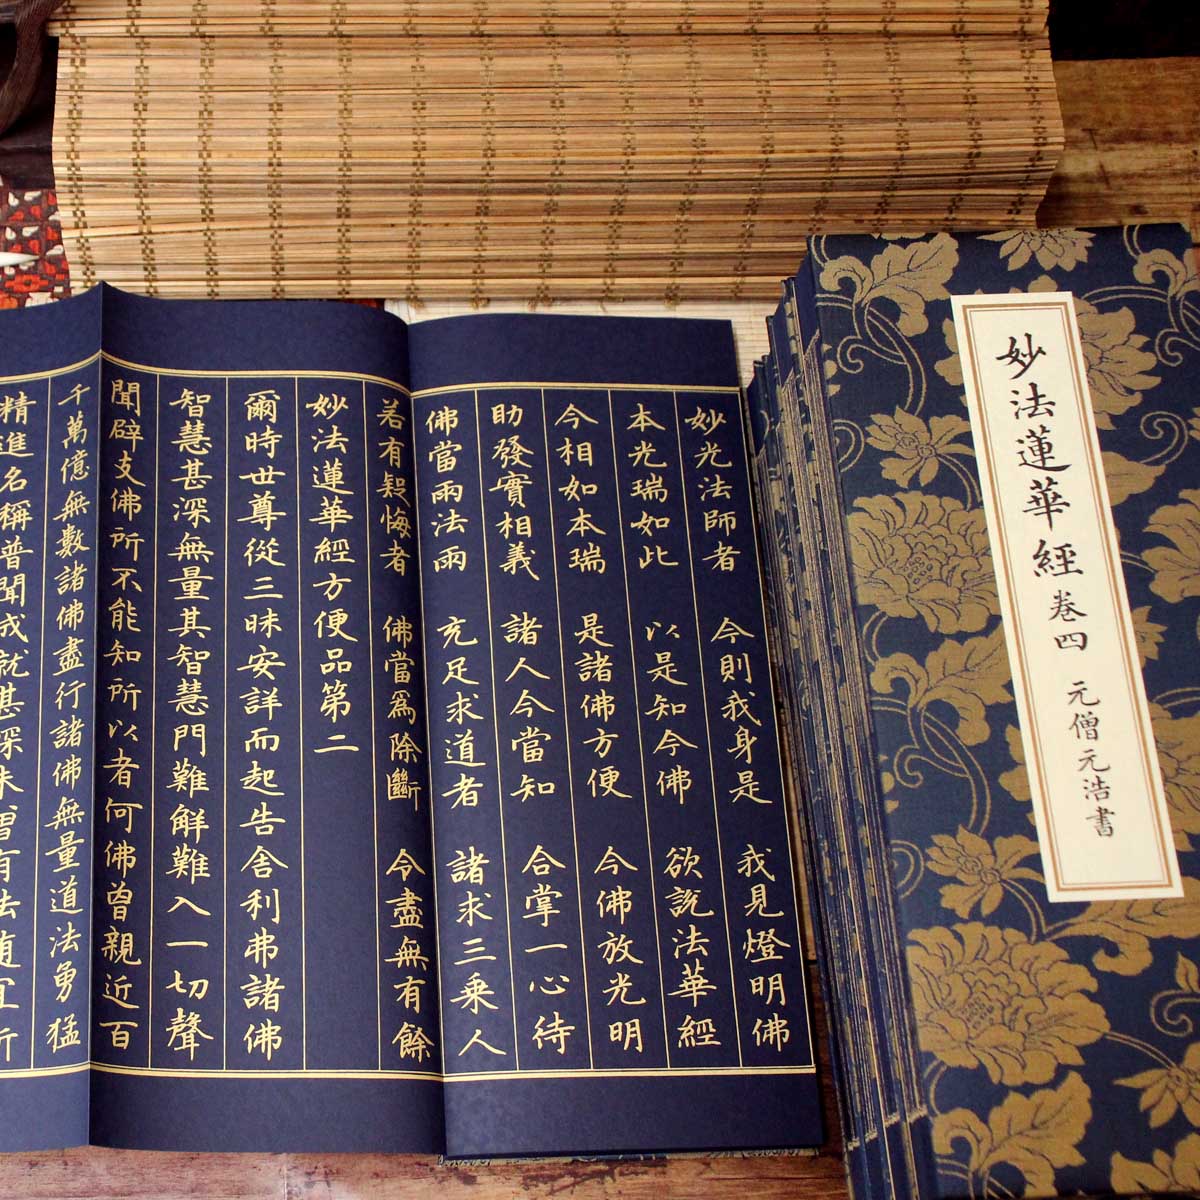 妙法蓮華經卷四 元僧元浩書
妙光法師者 今則我身是 我見燈明佛
本光瑞如此 以是知今佛 欲說法華經
今相如本瑞 是諸佛方便 今佛放光明
助發實相義 諸人今當知 合掌一心待
佛當雨法雨 充足求道者 諸求三乘人
若有疑悔者 佛當為除斷 令盡無有餘
妙法蓮華經方便品第二
爾時世尊從三昧安詳而起告舍利弗諸佛
智慧甚深無量其智慧門難解難入一切聲
聞辟支佛所不能知所以者何佛曾親近百
千萬億無數諸佛盡行諸佛無量道法勇猛
精進名稱普聞成就甚深未曾有法隨宜所